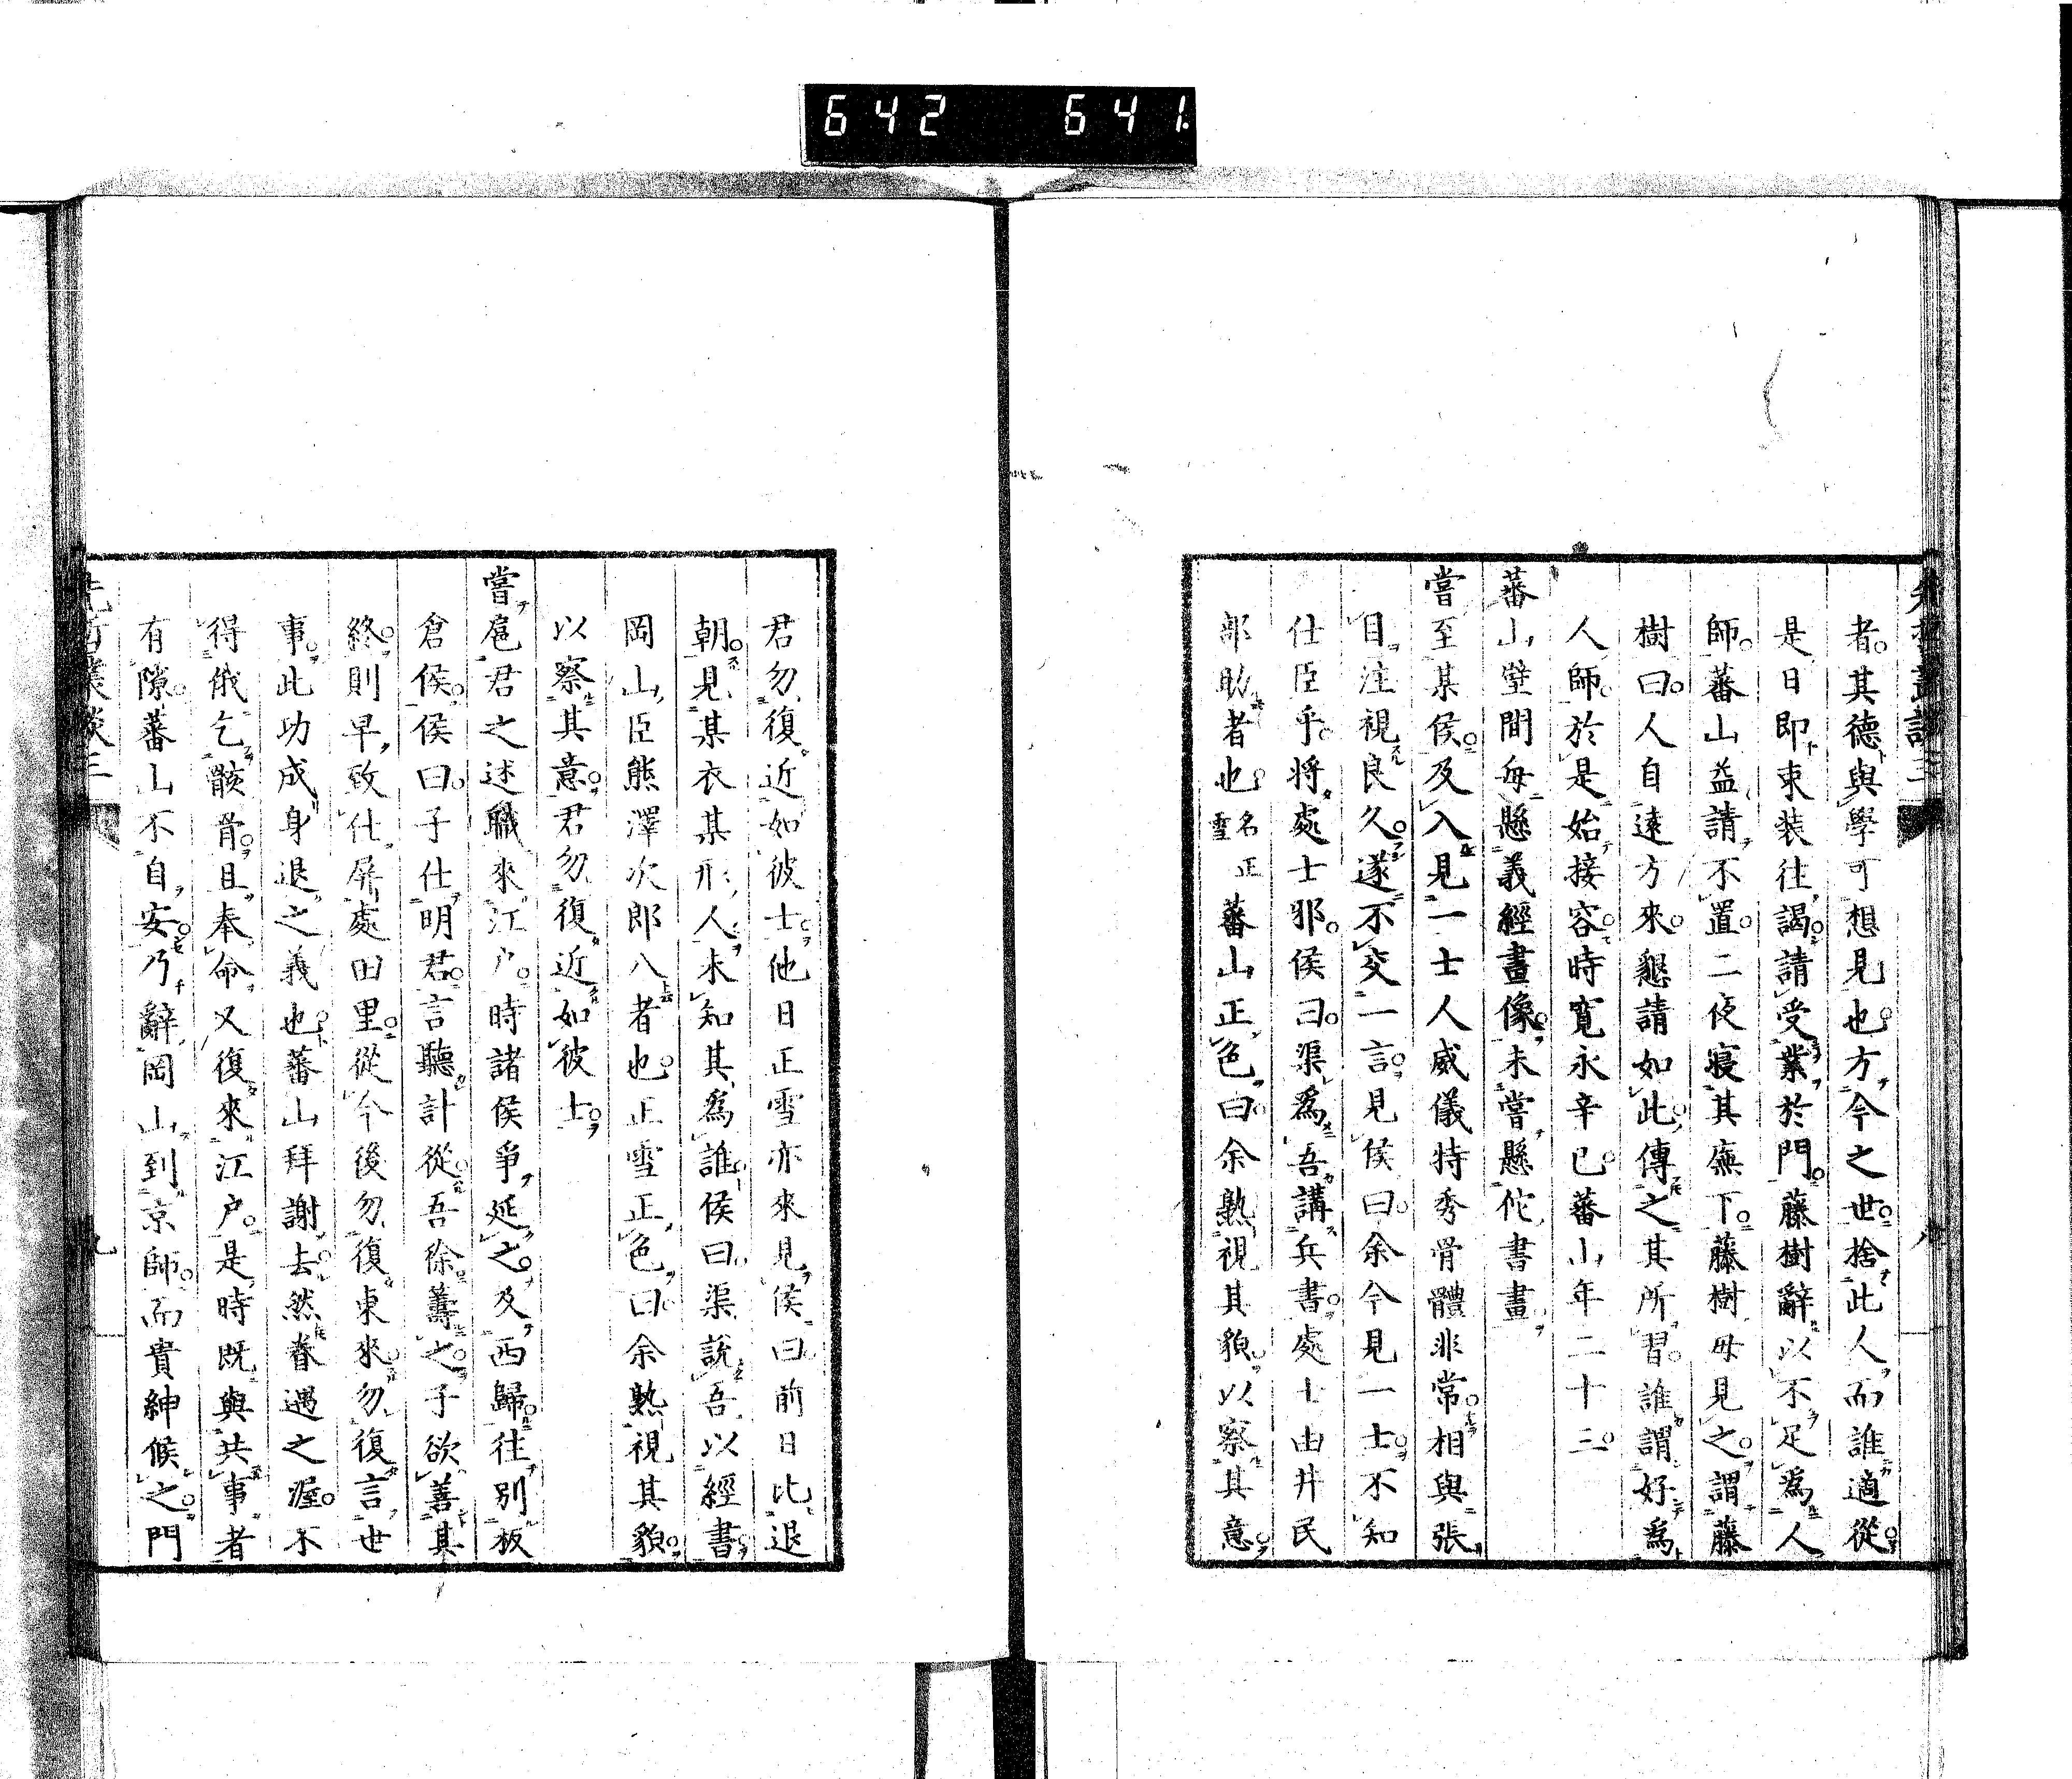 642 641
者其德與學可想見也方今之世捨此人而誰適從
是日即束裝往謁請受業於門藤樹辭以不足爲人
師蕃山益請不置二夜寢其廡下藤樹母見之謂藤
樹曰人自遠方來懇請如此傳之其所習誰謂好爲
人師於是始接容時寬永辛巳蕃山年二十三
蕃山壁間每懸義經畫像未嘗懸佗書畫
嘗至某侯及入見一士人威儀特秀骨體非常相與張
目注視良久遂不交一言見侯曰余今見一士不知
仕臣乎將處士邪侯曰渠爲吾講兵書處士由井民
部助者也名正雪蕃山正色曰余熟視其貌以察其意
君勿復近如彼士他日正雪亦來見侯曰前日比退
朝見某衣某形人未知其爲誰侯曰渠說吾以經書
岡山臣熊澤次郎八者也正雪正色曰余熟視其貌
以察其意君勿復近如彼士
嘗扈君之述職來江戶時諸侯爭延之及西歸往別板
倉侯侯曰子仕明君言聽計從吾徐籌之子欲善其
終則早致仕屏處田里從今後勿復東來勿復言世
事此功成身退之義也蕃山拜謝去然眷遇之渥不
得俄乞骸骨且奉命又復來江戶是時既與共事者
有隙蕃山不自安乃辭岡山到京師而貴紳候之門
先哲叢談三
九